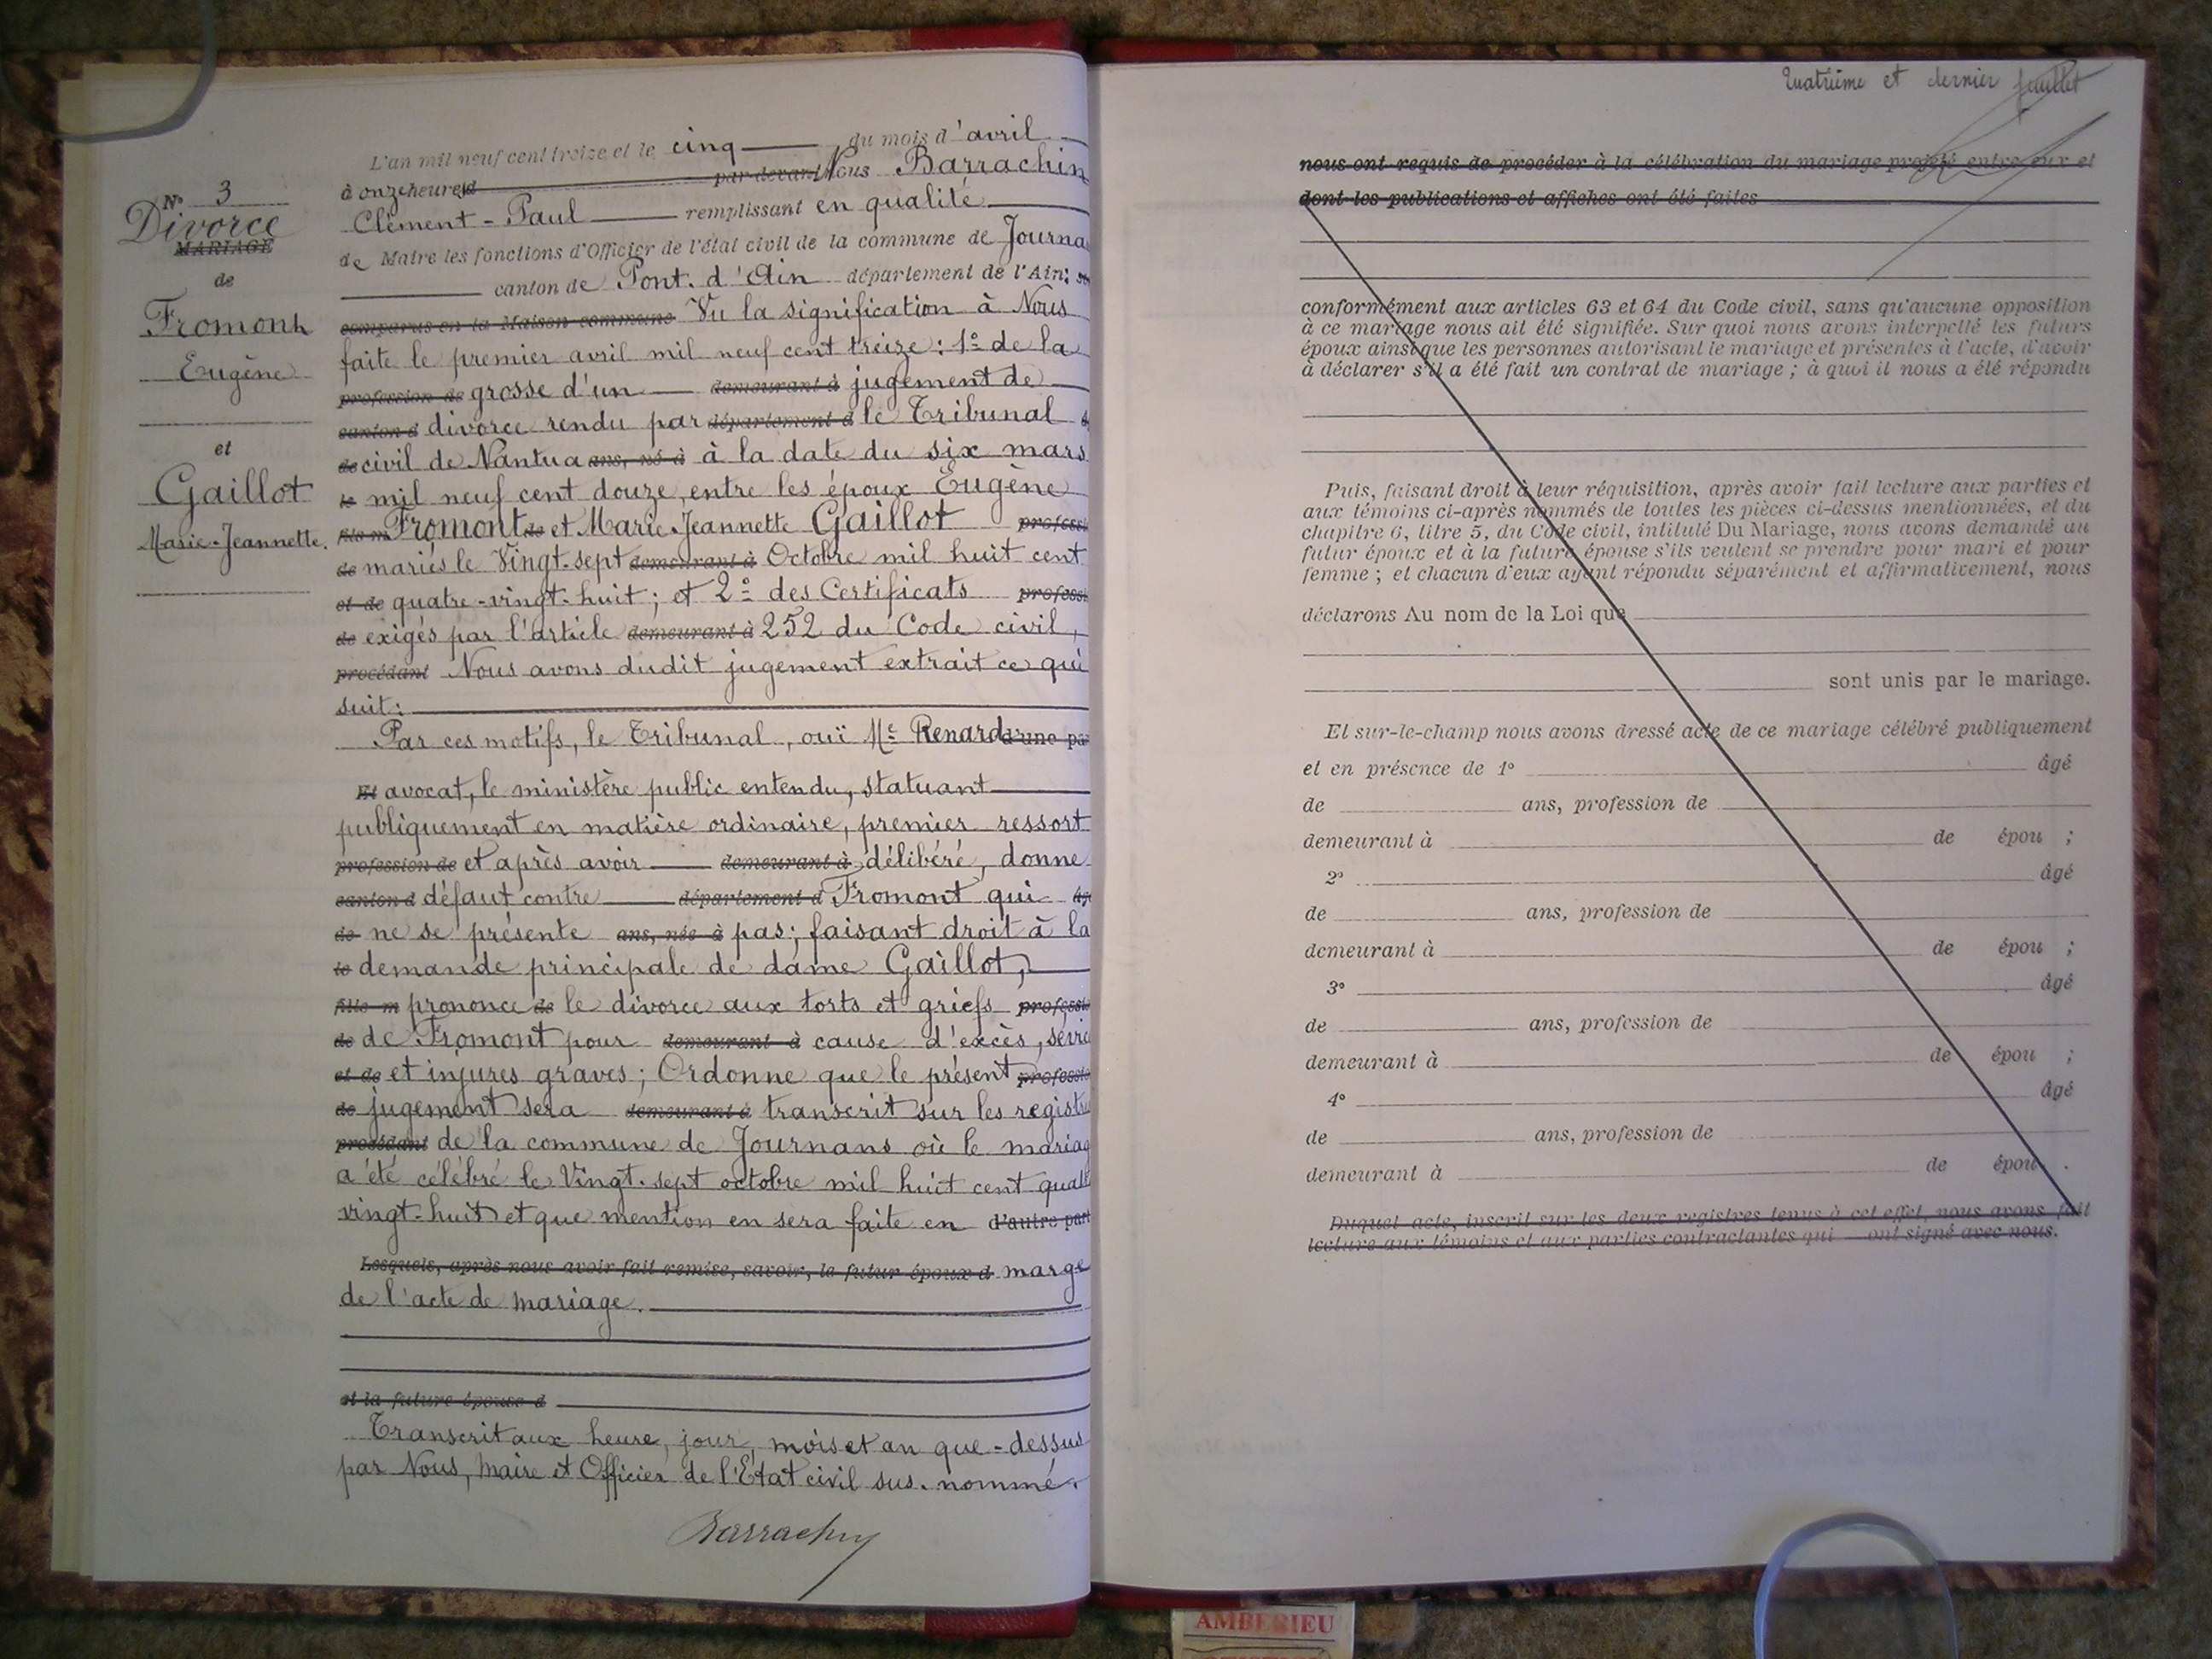 L'an mil neuf cent treize et le cinq du mois d'avril
à onze heures par devant Nous Barrachin
Clément-Paul remplissant en qualité
de Maire les fonctions d'Officier de l'état civil de la commune de Journa
canton de Pont. d'Ain département de l'Ain;
comparus en la Maison commune Vu la signification à Nous
faite le premier avril mil neuf cent treize: 1º de la
profession de grosse d'un demeurant à jugement de
canton d divorce rendu par département d le Tribunal
de civil de Nantua ans, né à à la date du six mars
le mil neuf cent douze, entre les époux Eugène
fils m Fromont de et Marie-Jeannette Gaillot professi
de mariés le Vingt-sept demeurant à Octobre mil huit cent
et de quatre-vingt-huit; et 2º des Certificats professi
de exigés par l'article demeurant à 252 du Code civil,
procédant Nous avons dudit jugement extrait ce qui
suit:
Par ces motifs, le Tribunal, ouï Me Renard d'une pa
Et avocat, le ministère public entendu, statuant
publiquement en matière ordinaire, premier ressort
profession de et après avoir demeurant à délibéré, donne
canton d défaut contre département d Fromont qui
de ne se présente ans, née à pas; faisant droit à la
le demande principale de dame Gaillot,
fille m prononce de le divorce aux torts et griefs professi
de de Fromont pour demeurant à cause d'excès, sévic
et de et injures graves; Ordonne que le présent professi
de jugement sera demeurant à transcrit sur les registr
procédant de la commune de Journans où le mariag
a été célébré le Vingt-sept octobre mil huit cent quat
vingt-huit et que mention en sera faite en d'autre part
Lesquels, après nous avoir fait remise, savoir, le futur époux d marge
de l'acte de mariage.
et la future épouse d
Transcrit aux heure, jour, mois et an que-dessus
par Nous, Maire et Officier de l'Etat civil sus-nommé.
Barrachin
Nº 3
Divorce
MARIAGE
de
Fromont
Eugène
et
Gaillot
Marie-Jeannette.
Quatrième et dernier feuillet
nous ont requis de procéder à la célébration du mariage projeté entre eux et
dont les publications et affiches ont été faites
conformément aux articles 63 et 64 du Code civil, sans qu'aucune opposition
à ce mariage nous ait été signifiée. Sur quoi nous avons interpellé les futurs
époux ainsi que les personnes autorisant le mariage et présentes à l'acte, d'avoir
à déclarer s'il a été fait un contrat de mariage; à quoi il nous a été répondu
Puis, faisant droit à leur réquisition, après avoir fait lecture aux parties et
aux témoins ci-après nommés de toutes les pièces ci-dessus mentionnées, et du
chapitre 6, titre 5, du Code civil, intitulé Du Mariage, nous avons demandé au
futur époux et à la future épouse s'ils veulent se prendre pour mari et pour
femme; et chacun d'eux ayant répondu séparément et affirmativement, nous
déclarons Au nom de la Loi que
sont unis par le mariage.
Et sur-le-champ nous avons dressé acte de ce mariage célébré publiquement
et en présence de 1º âgé
de ans, profession de
demeurant à de épou ;
2º âgé
de ans, profession de
demeurant à de épou ;
3º âgé
de ans, profession de
demeurant à de épou ;
4º âgé
de ans, profession de
demeurant à de épou .
Duquel acte, inscrit sur les deux registres tenus à cet effet, nous avons fait
lecture aux témoins et aux parties contractantes qui ont signé avec nous.
AMBERIEU